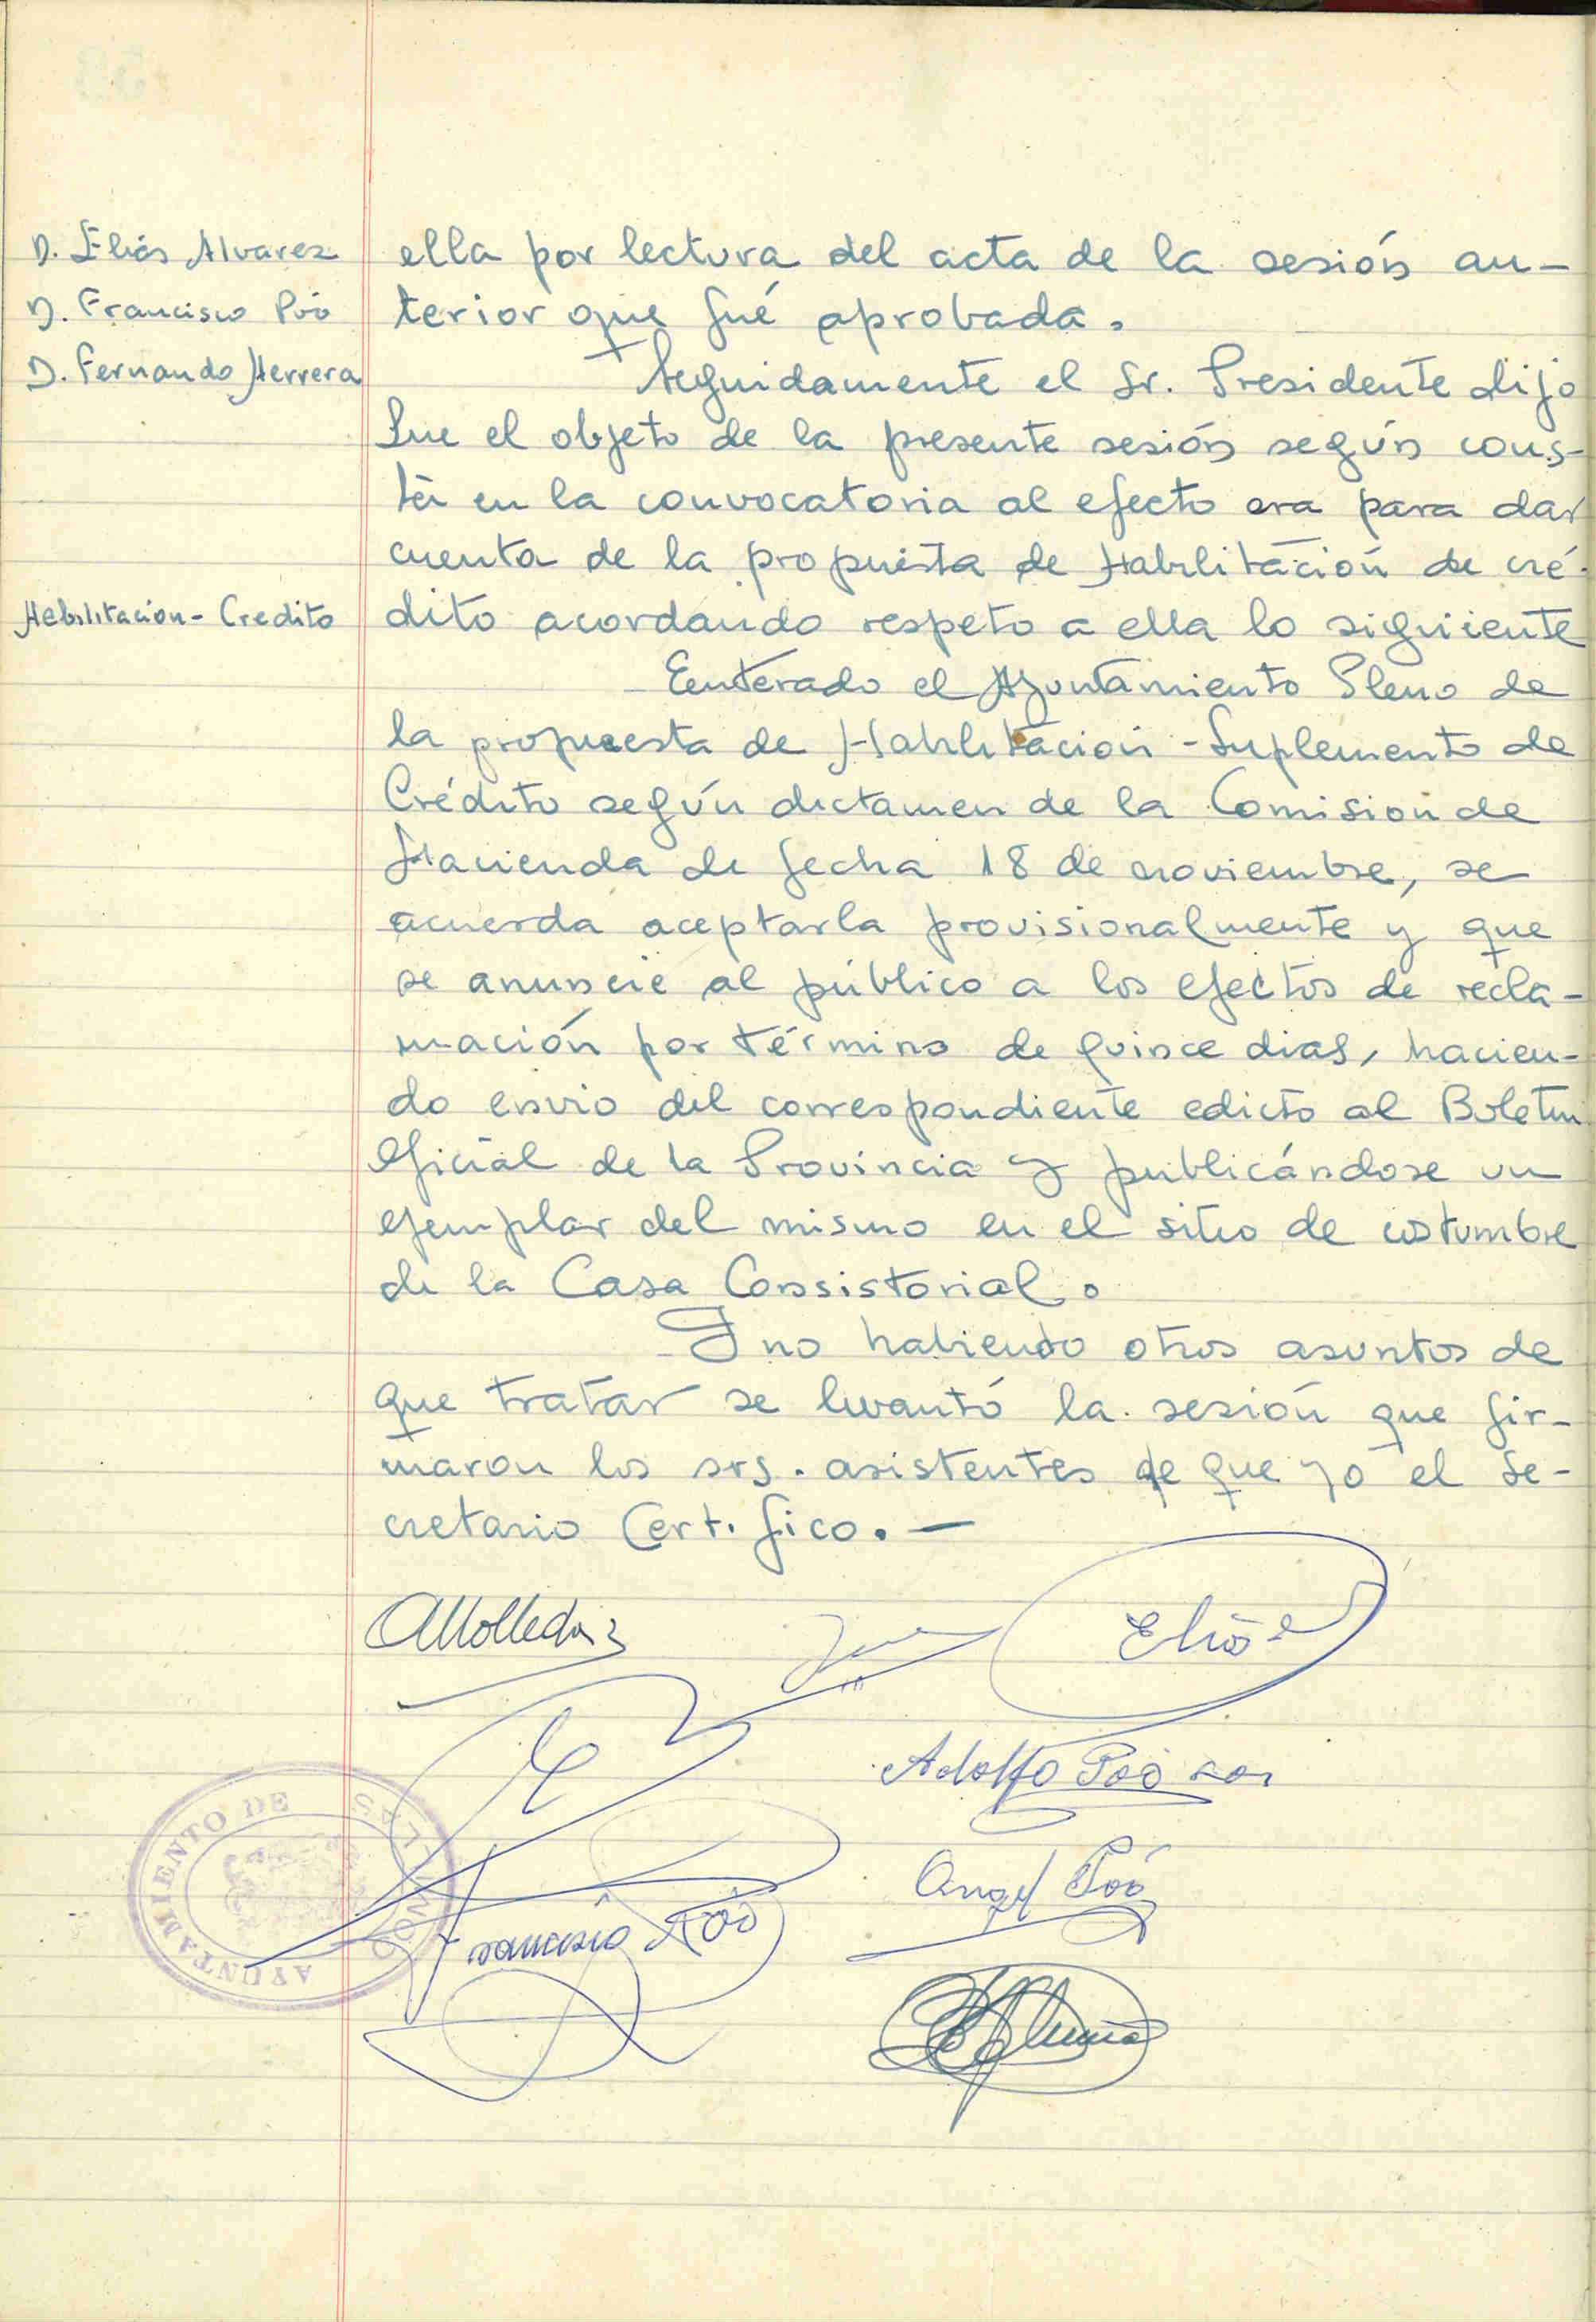 D. Eliás Alvarez
D. Francisco Póo
D. Fernando Herrera
ella por lectura del acta de la sesión an-
terior que fué aprobada.
Seguidamente el Sr. Presidente dijo
Que el objeto de la presente sesión según cons-
ta en la convocatoria al efecto era para dar
cuenta de la propuesta de Habilitación de cré-
Habilitacion - Credito
dito acordando respeto a ella lo siguiente
Eenterado el Ayuntamiento Pleno de
la propuesta de Habilitación - Suplemento de
Crédito según dictamen de la Comision de
Hacienda de fecha 18 de noviembre, se
acuerda aceptarla provisionalmente y que
se anuncie al público a los efectos de recla-
mación por término de quince dias, hacien-
do envio del correspondiente edicto al Boletin
Oficial de la Provincia y publicándose un
ejemplar del mismo en el sitio de costumbre
de la Casa Consistorial.
Y no habiendo otros asuntos de
que tratar se levantó la sesión que fir-
maron los srs. asistentes de que yo el Se-
cretario Certifico. —
Elias
Adolfo Póo
Angel Póo
Francisco Póo
AYUNTAMIENTO DE